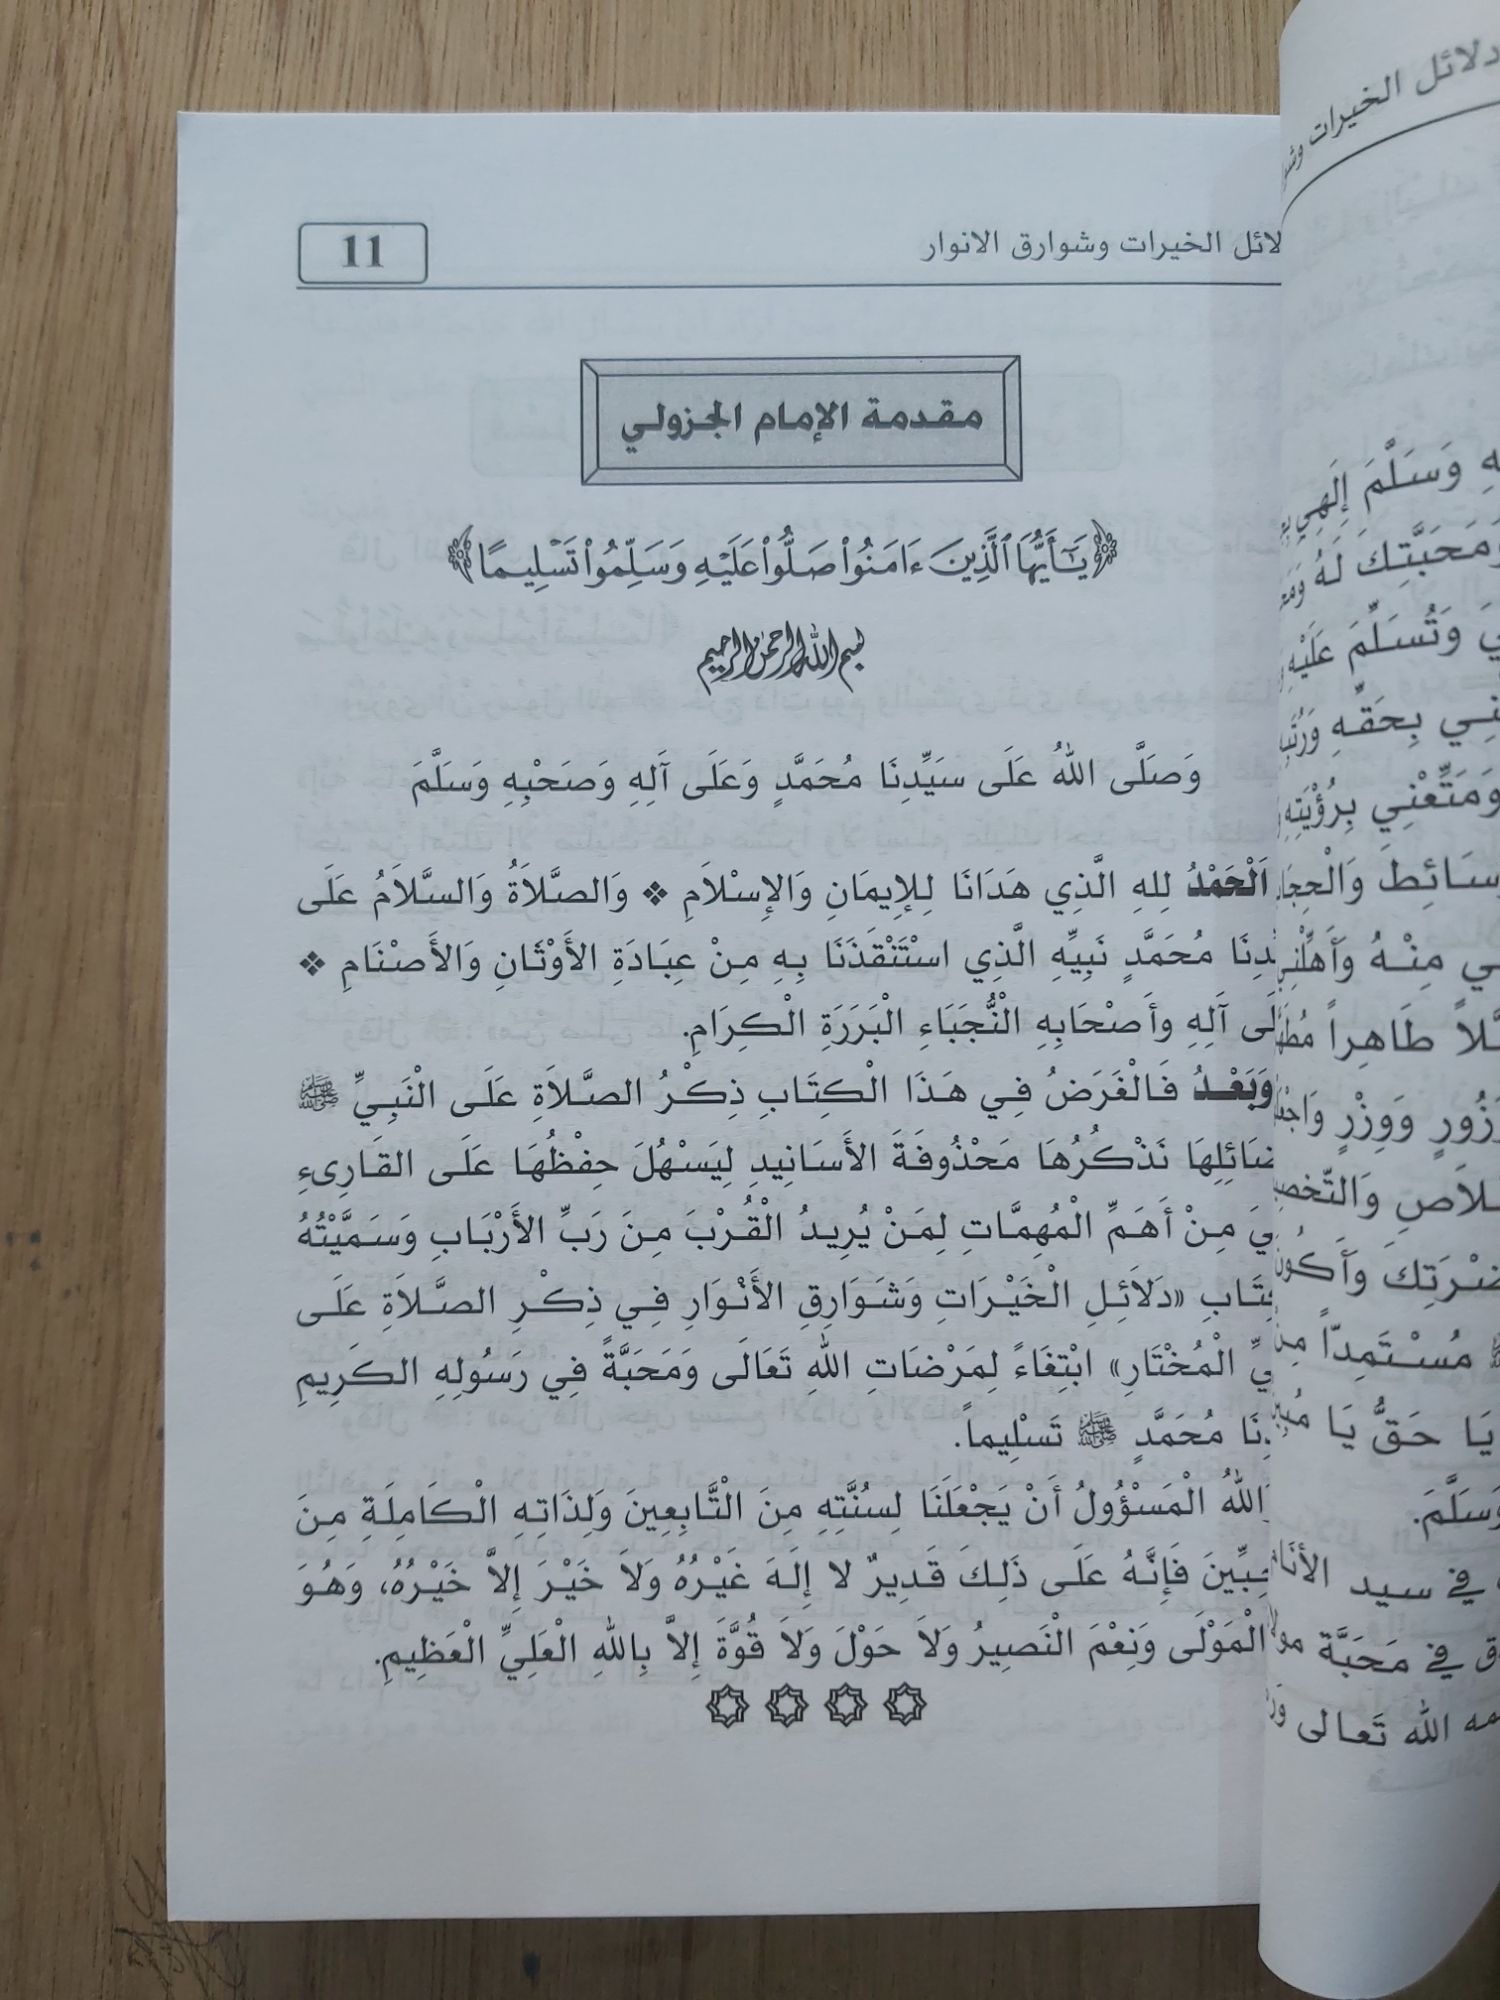 الخيرات وشوارق الانوار
11
مقدمة الإمام الجزولي
﴿يَـٰٓأَيُّهَا ٱلَّذِينَ ءَامَنُوا۟ صَلُّوا۟ عَلَيْهِ وَسَلِّمُوا۟ تَسْلِيمًا﴾
بسم الله الرحمن الرحيم
وَصَلَّى اللهُ عَلَى سَيِّدِنَا مُحَمَّدٍ وَعَلَى آلِهِ وَصَحْبِهِ وَسَلَّمَ
اَلْحَمْدُ لِلهِ الَّذِي هَدَانَا لِلإِيمَانِ وَالإِسْلاَمِ ❖ وَالصَّلاَةُ وَالسَّلاَمُ عَلَى
مُحَمَّدٍ نَبِيِّهِ الَّذِي اسْتَنْقَذَنَا بِهِ مِنْ عِبَادَةِ الأَوْثَانِ وَالأَصْنَامِ ❖
آلِهِ وأَصْحَابِهِ الْنُّجَبَاءِ الْبَرَرَةِ الْكِرَامِ.
وَبَعْدُ فَالْغَرَضُ فِي هَذَا الْكِتَابِ ذِكْرُ الصَّلاَةِ عَلَى الْنَبِيِّ ﷺ
نَذْكُرُهَا مَحْذُوفَةَ الأَسَانِيدِ لِيَسْهُلَ حِفْظُهَا عَلَى القَارِىءِ
مِنْ أَهَمِّ الْمُهِمَّاتِ لِمَنْ يُرِيدُ الْقُرْبَ مِنَ رَبِّ الأَرْبَابِ وَسَمَّيْتُهُ
«دَلاَئِلِ الْخَيْرَاتِ وَشَوَارِقِ الأَنْوَارِ فِي ذِكْرِ الصَّلاَةِ عَلَى
الْمُخْتَارِ» ابْتِغَاءً لِمَرْضَاتِ اللهِ تَعَالَى وَمَحَبَّةً فِي رَسُولِهِ الكَرِيمِ
مُحَمَّدٍ ﷺ تَسْلِيماً.
اللهُ الْمَسْؤُولُ أَنْ يَجْعَلَنَا لِسُنَّتِهِ مِنَ الْتَّابِعِينَ وَلِذَاتِهِ الْكَامِلَةِ مِنَ
فَإِنَّهُ عَلَى ذَلِكَ قَدِيرٌ لا إِلَهَ غَيْرُهُ وَلاَ خَيْرَ إِلاَّ خَيْرُهُ، وَهُوَ
الْمَوْلَى وَنِعْمَ الْنَصِيرُ وَلاَ حَوْلَ وَلاَ قُوَّةَ إِلاَّ بِاللهِ الْعَلِيِّ الْعَظِيمِ.
دلائل الخيرات
وَسَلَّمَ إِلَهِي
وَمَحَبَّتِكَ لَهُ
وَتُسَلِّمَ عَلَيْهِ
بِحَقِّهِ
وَمَتِّعْنِي بِرُؤْيَتِهِ
مِنْهُ
طَاهِراً
وَوِزْرٍ
مُسْتَمِدّاً
يَا حَقُّ يَا
وَسَلَّمَ.
في سيد
في مَحَبَّة
الله تَعالى